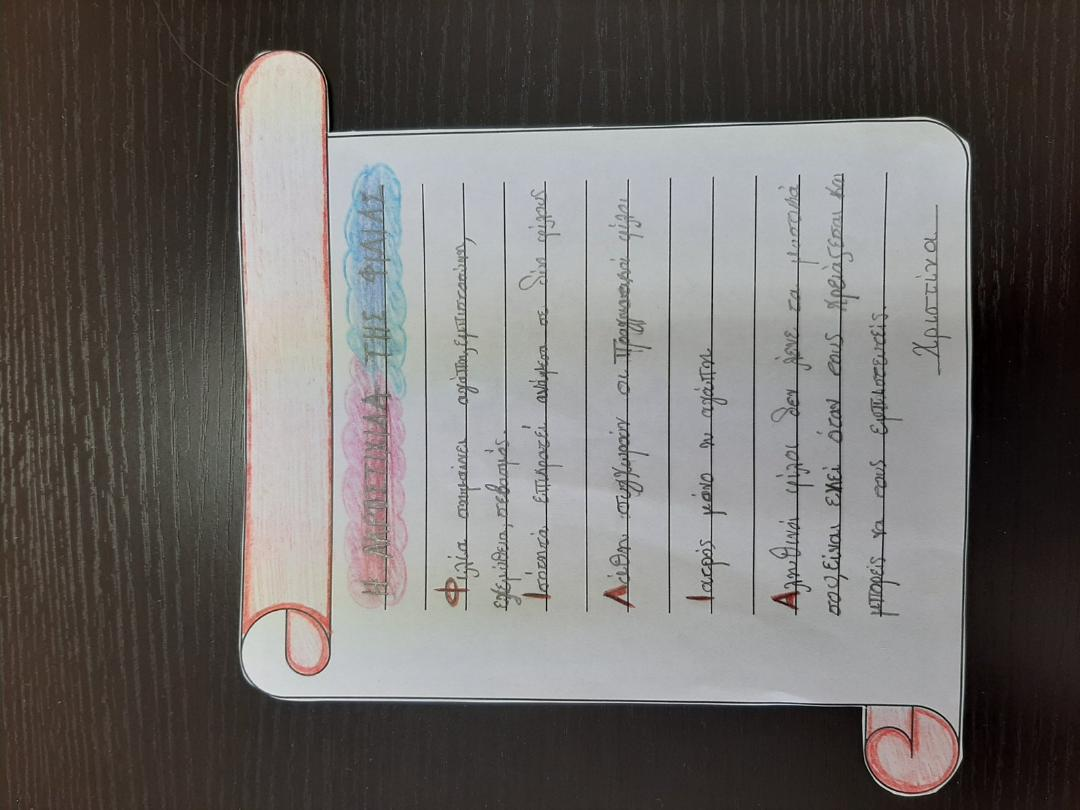 Η ΑΚΡΟΣΤΙΧΙΔΑ ΤΗΣ ΦΙΛΙΑΣ
Φιλία σημαίνει αγάπη, εμπιστοσύνη,
εχεμύθεια, σεβασμός.
Ισότητα επικρατεί ανάμεσα σε δύο φίλους
Λάθη συγχωρούν οι πραγματικοί φίλοι
Ιατρός μόνο η αγάπη.
Αληθινοί φίλοι δεν λένε τα μυστικά
σου, είναι εκεί όταν τους χρειάζεσαι και
μπορείς να τους εμπιστευτείς.
Χριστίνα